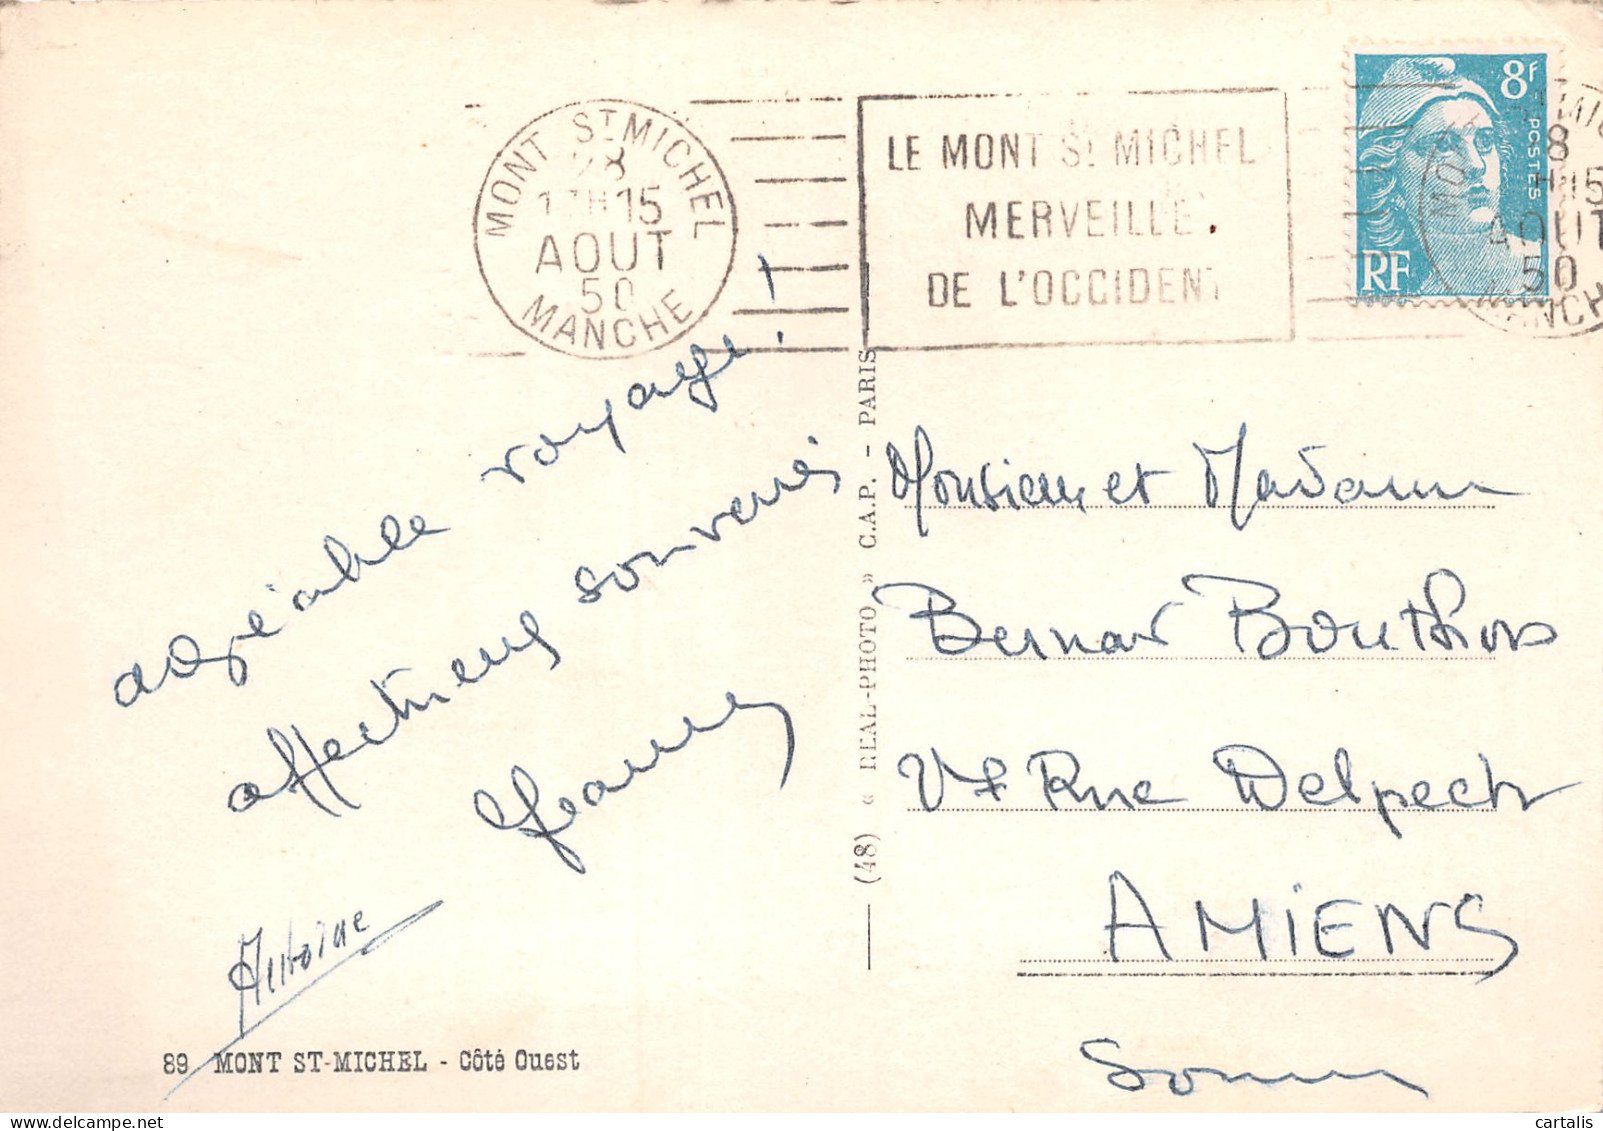 MONT ST MICHEL
28
17H15
AOUT
50
MANCHE
LE MONT St MICHEL
MERVEILLE
DE L'OCCIDENT
8F
POSTES
RF
8
H15
AOUT
50
agréable voyage !
affectueux souvenirs
Jeanne
Antoine
89 MONT ST-MICHEL - Côté Ouest
(48) « REAL-PHOTO » C.A.P. - PARIS
Monsieur et Madame
Bernard Bouthors
Rue Delpech
AMIENS
Somme
cartalis
delcampe.net